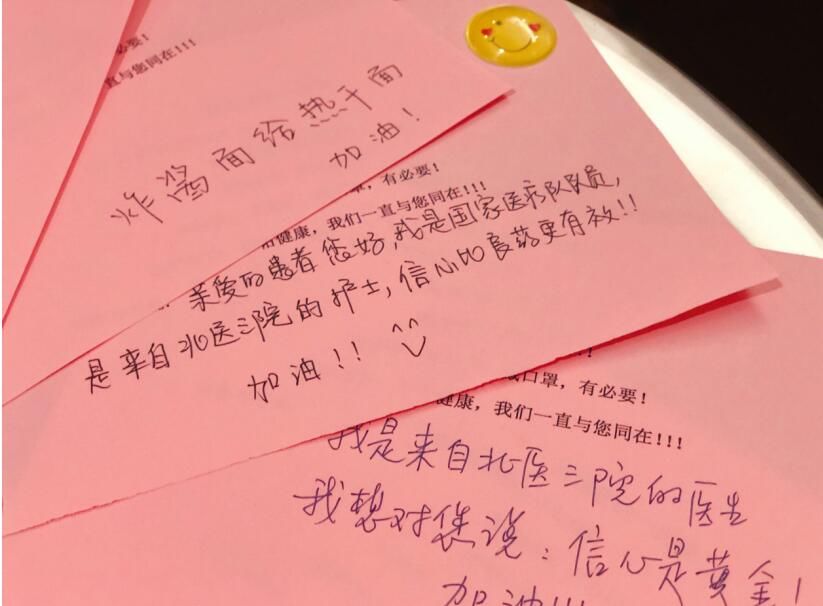 必要!
直与您同在!!!
炸酱面给热干面
加油!
,有必要!
健康,我们一直与您同在!!!
亲爱的患者您好,我是国家医疗队队员,
是来自北医三院的护士,信心比良药更有效!!
加油!!
!!
口罩,有必要!
健康,我们一直与您同在!!!
我是来自北医三院的医生
我想对您说:信心是黄金!
加油!!!